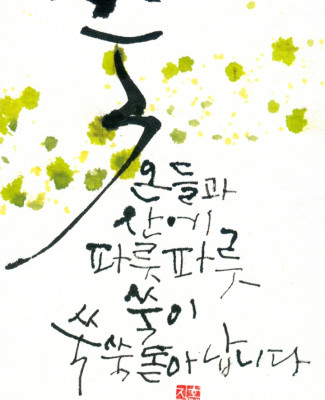 온들과
산에
파릇파릇
쑥이
쑥쑥돋아납니다